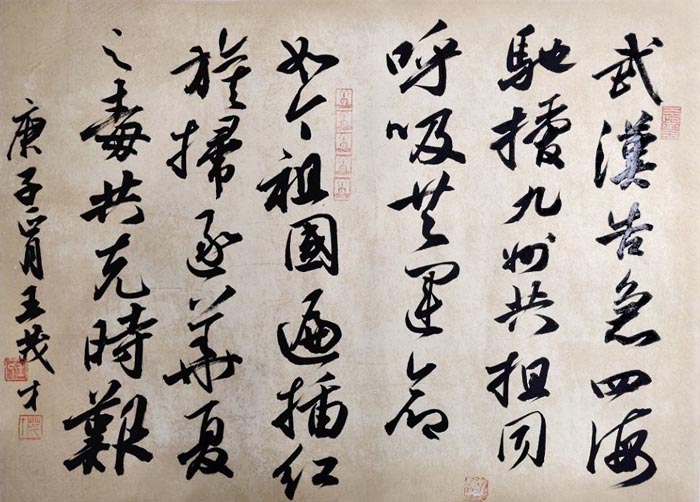 武漢告急四海
馳援九州共担同
呼吸共運命
如今祖國遍插红
旗掃逐華夏
之毒共克時艱
庚子正月王茂才